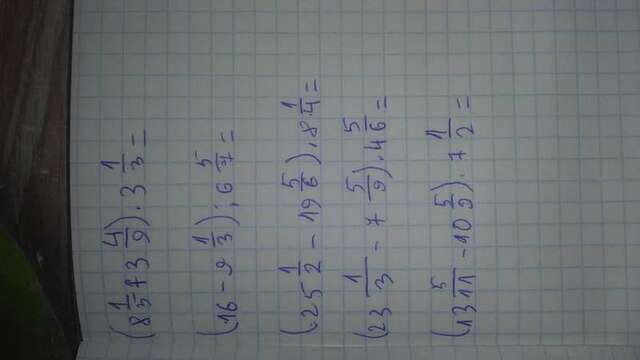 (8 1/5 + 3 4/9) · 3 1/3 =
(16 - 9 1/3) : 6 5/7 =
(25 1/2 - 19 5/6) · 8 1/4 =
(23 1/3 - 7 5/9) · 4 5/6 =
(13 5/11 - 10 5/9) · 7 1/2 =